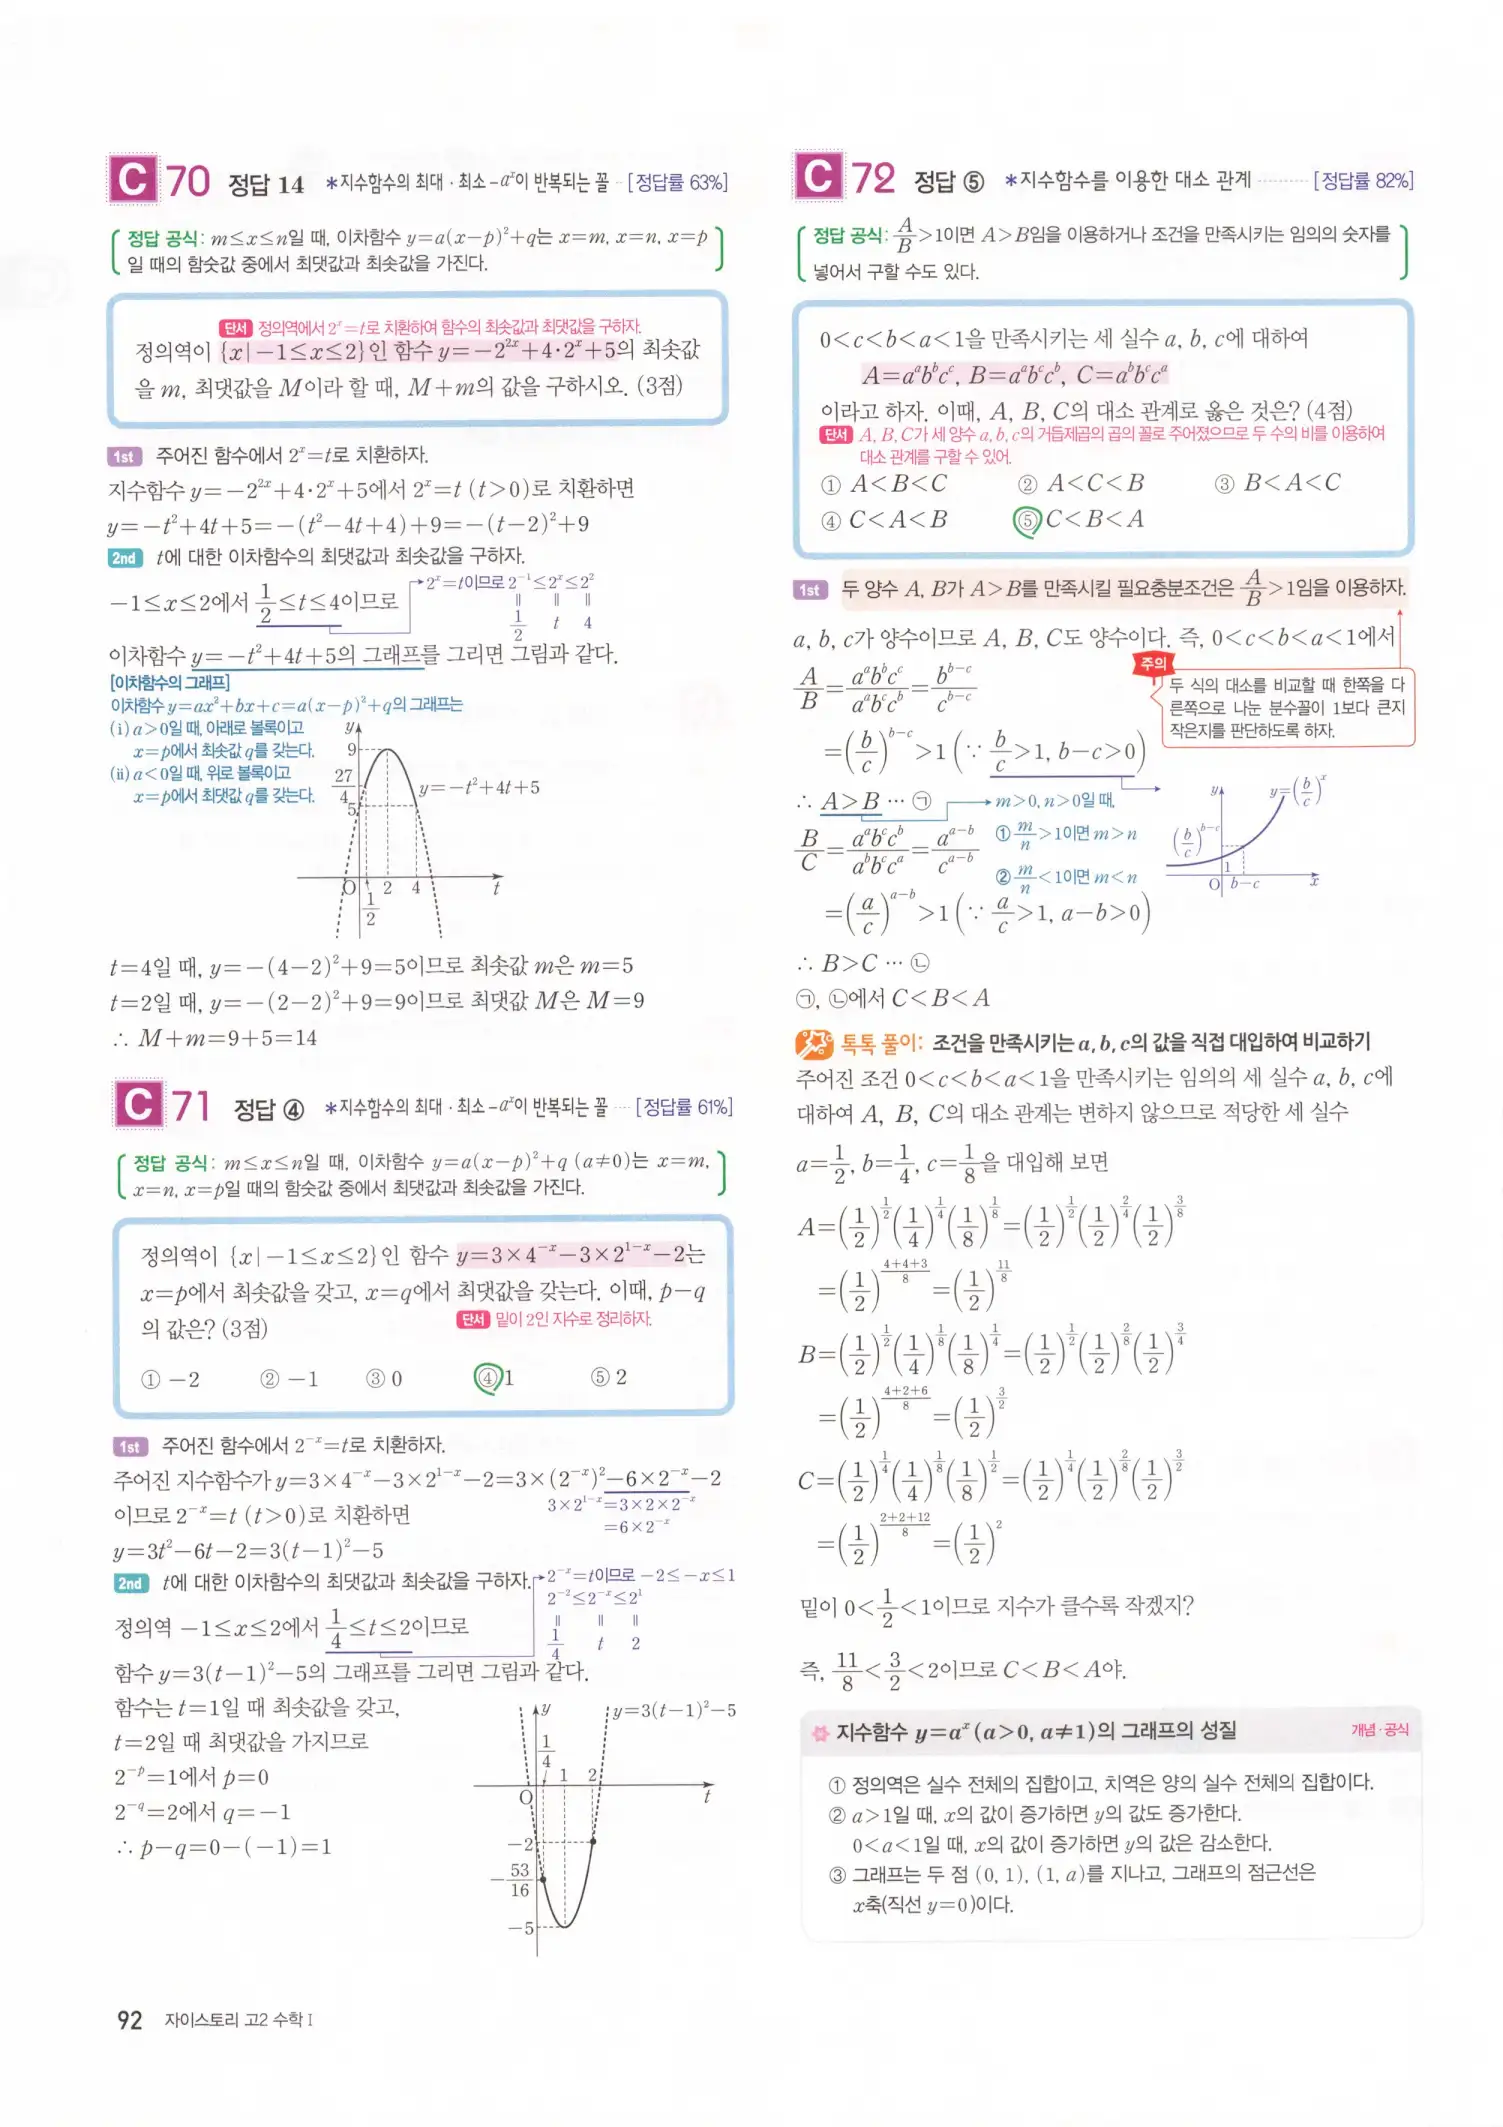 C 70 정답 14 *지수함수의 최대·최소-aˣ이 반복되는 꼴 [정답률 63%]
정답 공식: m≤x≤n일 때, 이차함수 y=a(x-p)²+q는 x=m, x=n, x=p
일 때의 함숫값 중에서 최댓값과 최솟값을 가진다.
단서 정의역에서 2ˣ=t로 치환하여 함수의 최솟값과 최댓값을 구하자.
정의역이 {x|-1≤x≤2}인 함수 y=-2²ˣ+4·2ˣ+5의 최솟값
을 m, 최댓값을 M이라 할 때, M+m의 값을 구하시오. (3점)
1st 주어진 함수에서 2ˣ=t로 치환하자.
지수함수 y=-2²ˣ+4·2ˣ+5에서 2ˣ=t (t>0)로 치환하면
y=-t²+4t+5=-(t²-4t+4)+9=-(t-2)²+9
2nd t에 대한 이차함수의 최댓값과 최솟값을 구하자.
-1≤x≤2에서 1/2≤t≤4이므로
2ˣ=t이므로 2⁻¹≤2ˣ≤2²
|| || ||
1/2 t 4
이차함수 y=-t²+4t+5의 그래프를 그리면 그림과 같다.
[이차함수의 그래프]
이차함수 y=ax²+bx+c=a(x-p)²+q의 그래프는
(i) a>0일 때, 아래로 볼록이고
x=p에서 최솟값 q를 갖는다.
(ii) a<0일 때, 위로 볼록이고
x=p에서 최댓값 q를 갖는다.
y
9
27/4
5
y=-t²+4t+5
O 1/2 2 4 t
t=4일 때, y=-(4-2)²+9=5이므로 최솟값 m은 m=5
t=2일 때, y=-(2-2)²+9=9이므로 최댓값 M은 M=9
∴ M+m=9+5=14
C 71 정답 ④ *지수함수의 최대·최소-aˣ이 반복되는 꼴 [정답률 61%]
정답 공식: m≤x≤n일 때, 이차함수 y=a(x-p)²+q (a≠0)는 x=m,
x=n, x=p일 때의 함숫값 중에서 최댓값과 최솟값을 가진다.
정의역이 {x|-1≤x≤2}인 함수 y=3×4⁻ˣ-3×2¹⁻ˣ-2는
x=p에서 최솟값을 갖고, x=q에서 최댓값을 갖는다. 이때, p-q
의 값은? (3점)
단서 밑이 2인 지수로 정리하자.
① -2 ② -1 ③ 0 ④ 1 ⑤ 2
1st 주어진 함수에서 2⁻ˣ=t로 치환하자.
주어진 지수함수가 y=3×4⁻ˣ-3×2¹⁻ˣ-2=3×(2⁻ˣ)²-6×2⁻ˣ-2
이므로 2⁻ˣ=t (t>0)로 치환하면
3×2¹⁻ˣ=3×2×2⁻ˣ
=6×2⁻ˣ
y=3t²-6t-2=3(t-1)²-5
2nd t에 대한 이차함수의 최댓값과 최솟값을 구하자.
2⁻ˣ=t이므로 -2≤-x≤1
2⁻²≤2⁻ˣ≤2¹
|| || ||
1/4 t 2
정의역 -1≤x≤2에서 1/4≤t≤2이므로
함수 y=3(t-1)²-5의 그래프를 그리면 그림과 같다.
함수는 t=1일 때 최솟값을 갖고,
t=2일 때 최댓값을 가지므로
2⁻ᵖ=1에서 p=0
2^(-q)=2에서 q=-1
∴ p-q=0-(-1)=1
y
y=3(t-1)²-5
1/4
1 2
O t
-2
-53/16
-5
92 자이스토리 고2 수학 I
C 72 정답 ⑤ *지수함수를 이용한 대소 관계 [정답률 82%]
정답 공식: A/B>1이면 A>B임을 이용하거나 조건을 만족시키는 임의의 숫자를
넣어서 구할 수도 있다.
0<c<b<a<1을 만족시키는 세 실수 a, b, c에 대하여
A=aᵃbᵇcᶜ, B=aᵃbᶜcᵇ, C=aᵇbᶜcᵃ
이라고 하자. 이때, A, B, C의 대소 관계로 옳은 것은? (4점)
단서 A, B, C가 세 양수 a, b, c의 거듭제곱의 곱의 꼴로 주어졌으므로 두 수의 비를 이용하여
대소 관계를 구할 수 있어.
① A<B<C ② A<C<B ③ B<A<C
④ C<A<B ⑤ C<B<A
1st 두 양수 A, B가 A>B를 만족시킬 필요충분조건은 A/B>1임을 이용하자.
a, b, c가 양수이므로 A, B, C도 양수이다. 즉, 0<c<b<a<1에서
A/B=aᵃbᵇcᶜ/aᵃbᶜcᵇ=bᵇ⁻ᶜ/cᵇ⁻ᶜ
주의
두 식의 대소를 비교할 때 한쪽을 다
른쪽으로 나눈 분수꼴이 1보다 큰지
작은지를 판단하도록 하자.
=(b/c)ᵇ⁻ᶜ>1 (∵ b/c>1, b-c>0)
∴ A>B … ㉠
m>0, n>0일 때,
① m/n>1이면 m>n
② m/n<1이면 m<n
y
y=(b/c)ˣ
(b/c)ᵇ⁻ᶜ
1
O b-c x
B/C=aᵃbᶜcᵇ/aᵇbᶜcᵃ=aᵃ⁻ᵇ/cᵃ⁻ᵇ
=(a/c)ᵃ⁻ᵇ>1 (∵ a/c>1, a-b>0)
∴ B>C … ㉡
㉠, ㉡에서 C<B<A
톡톡 풀이: 조건을 만족시키는 a, b, c의 값을 직접 대입하여 비교하기
주어진 조건 0<c<b<a<1을 만족시키는 임의의 세 실수 a, b, c에
대하여 A, B, C의 대소 관계는 변하지 않으므로 적당한 세 실수
a=1/2, b=1/4, c=1/8을 대입해 보면
A=(1/2)^(1/2)(1/4)^(1/4)(1/8)^(1/8)=(1/2)^(1/2)(1/2)^(2/4)(1/2)^(3/8)
=(1/2)^((4+4+3)/8)=(1/2)^(11/8)
B=(1/2)^(1/2)(1/4)^(1/8)(1/8)^(1/4)=(1/2)^(1/2)(1/2)^(2/8)(1/2)^(3/4)
=(1/2)^((4+2+6)/8)=(1/2)^(3/2)
C=(1/2)^(1/4)(1/4)^(1/8)(1/8)^(1/2)=(1/2)^(1/4)(1/2)^(2/8)(1/2)^(3/2)
=(1/2)^((2+2+12)/8)=(1/2)²
밑이 0<1/2<1이므로 지수가 클수록 작겠지?
즉, 11/8<3/2<2이므로 C<B<A야.
지수함수 y=aˣ (a>0, a≠1)의 그래프의 성질 개념·공식
① 정의역은 실수 전체의 집합이고, 치역은 양의 실수 전체의 집합이다.
② a>1일 때, x의 값이 증가하면 y의 값도 증가한다.
0<a<1일 때, x의 값이 증가하면 y의 값은 감소한다.
③ 그래프는 두 점 (0, 1), (1, a)를 지나고, 그래프의 점근선은
x축(직선 y=0)이다.